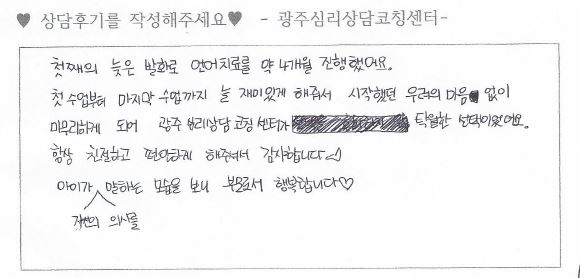 ♥ 상담후기를 작성해주세요♥ - 광주심리상담코칭센터-
첫째의 늦은 발화로 언어치료를 약 4개월 진행했어요.
첫 수업부터 마지막 수업까지 늘 재미있게 해줘서 시작했던 우려의 마음 없이
마무리하게 되어 광주 심리상담 코칭 센터가 탁월한 선택이었어요.
항상 친절하고 편안하게 해주셔서 감사합니다♡
아이가 말하는 모습을 보니 부모로서 행복합니다♡
자신의 의사를